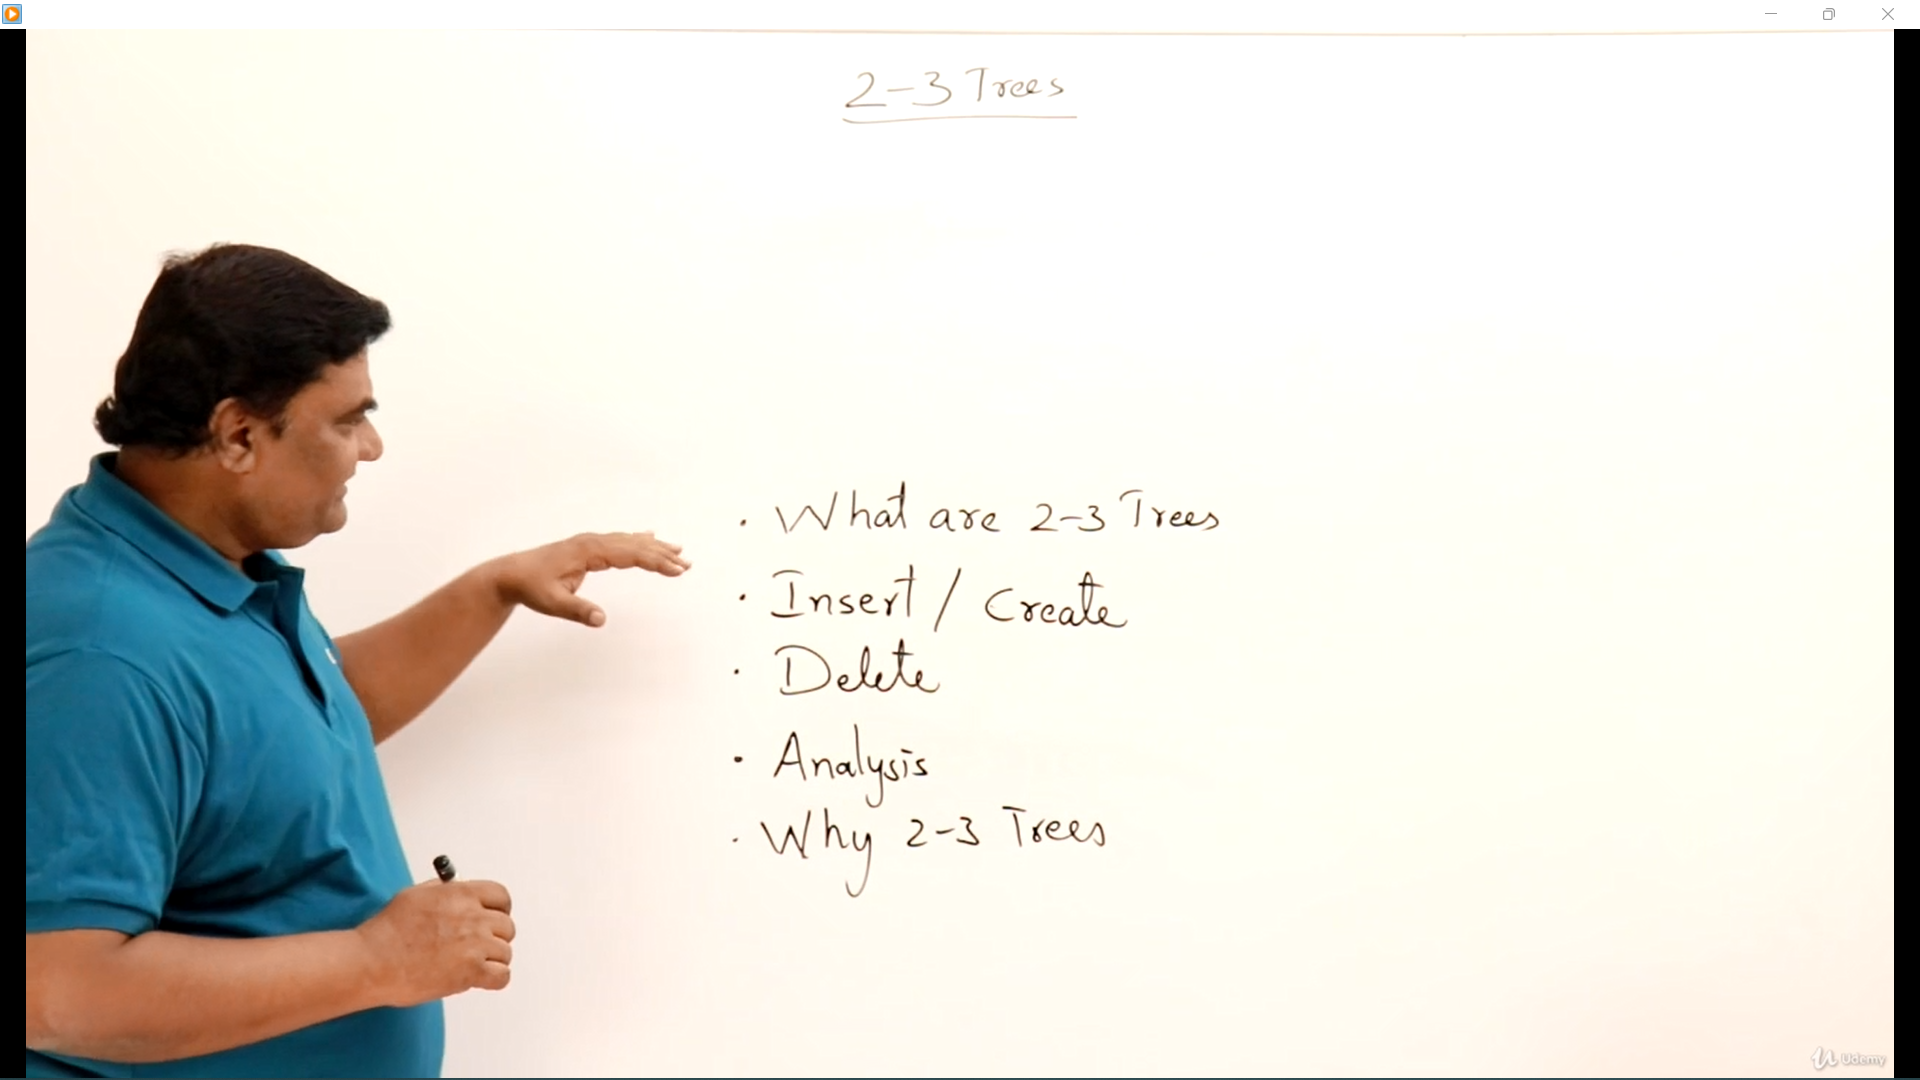 2-3 Trees
· What are 2-3 Trees
· Insert / Create
· Delete
· Analysis
· Why 2-3 Trees
Udemy